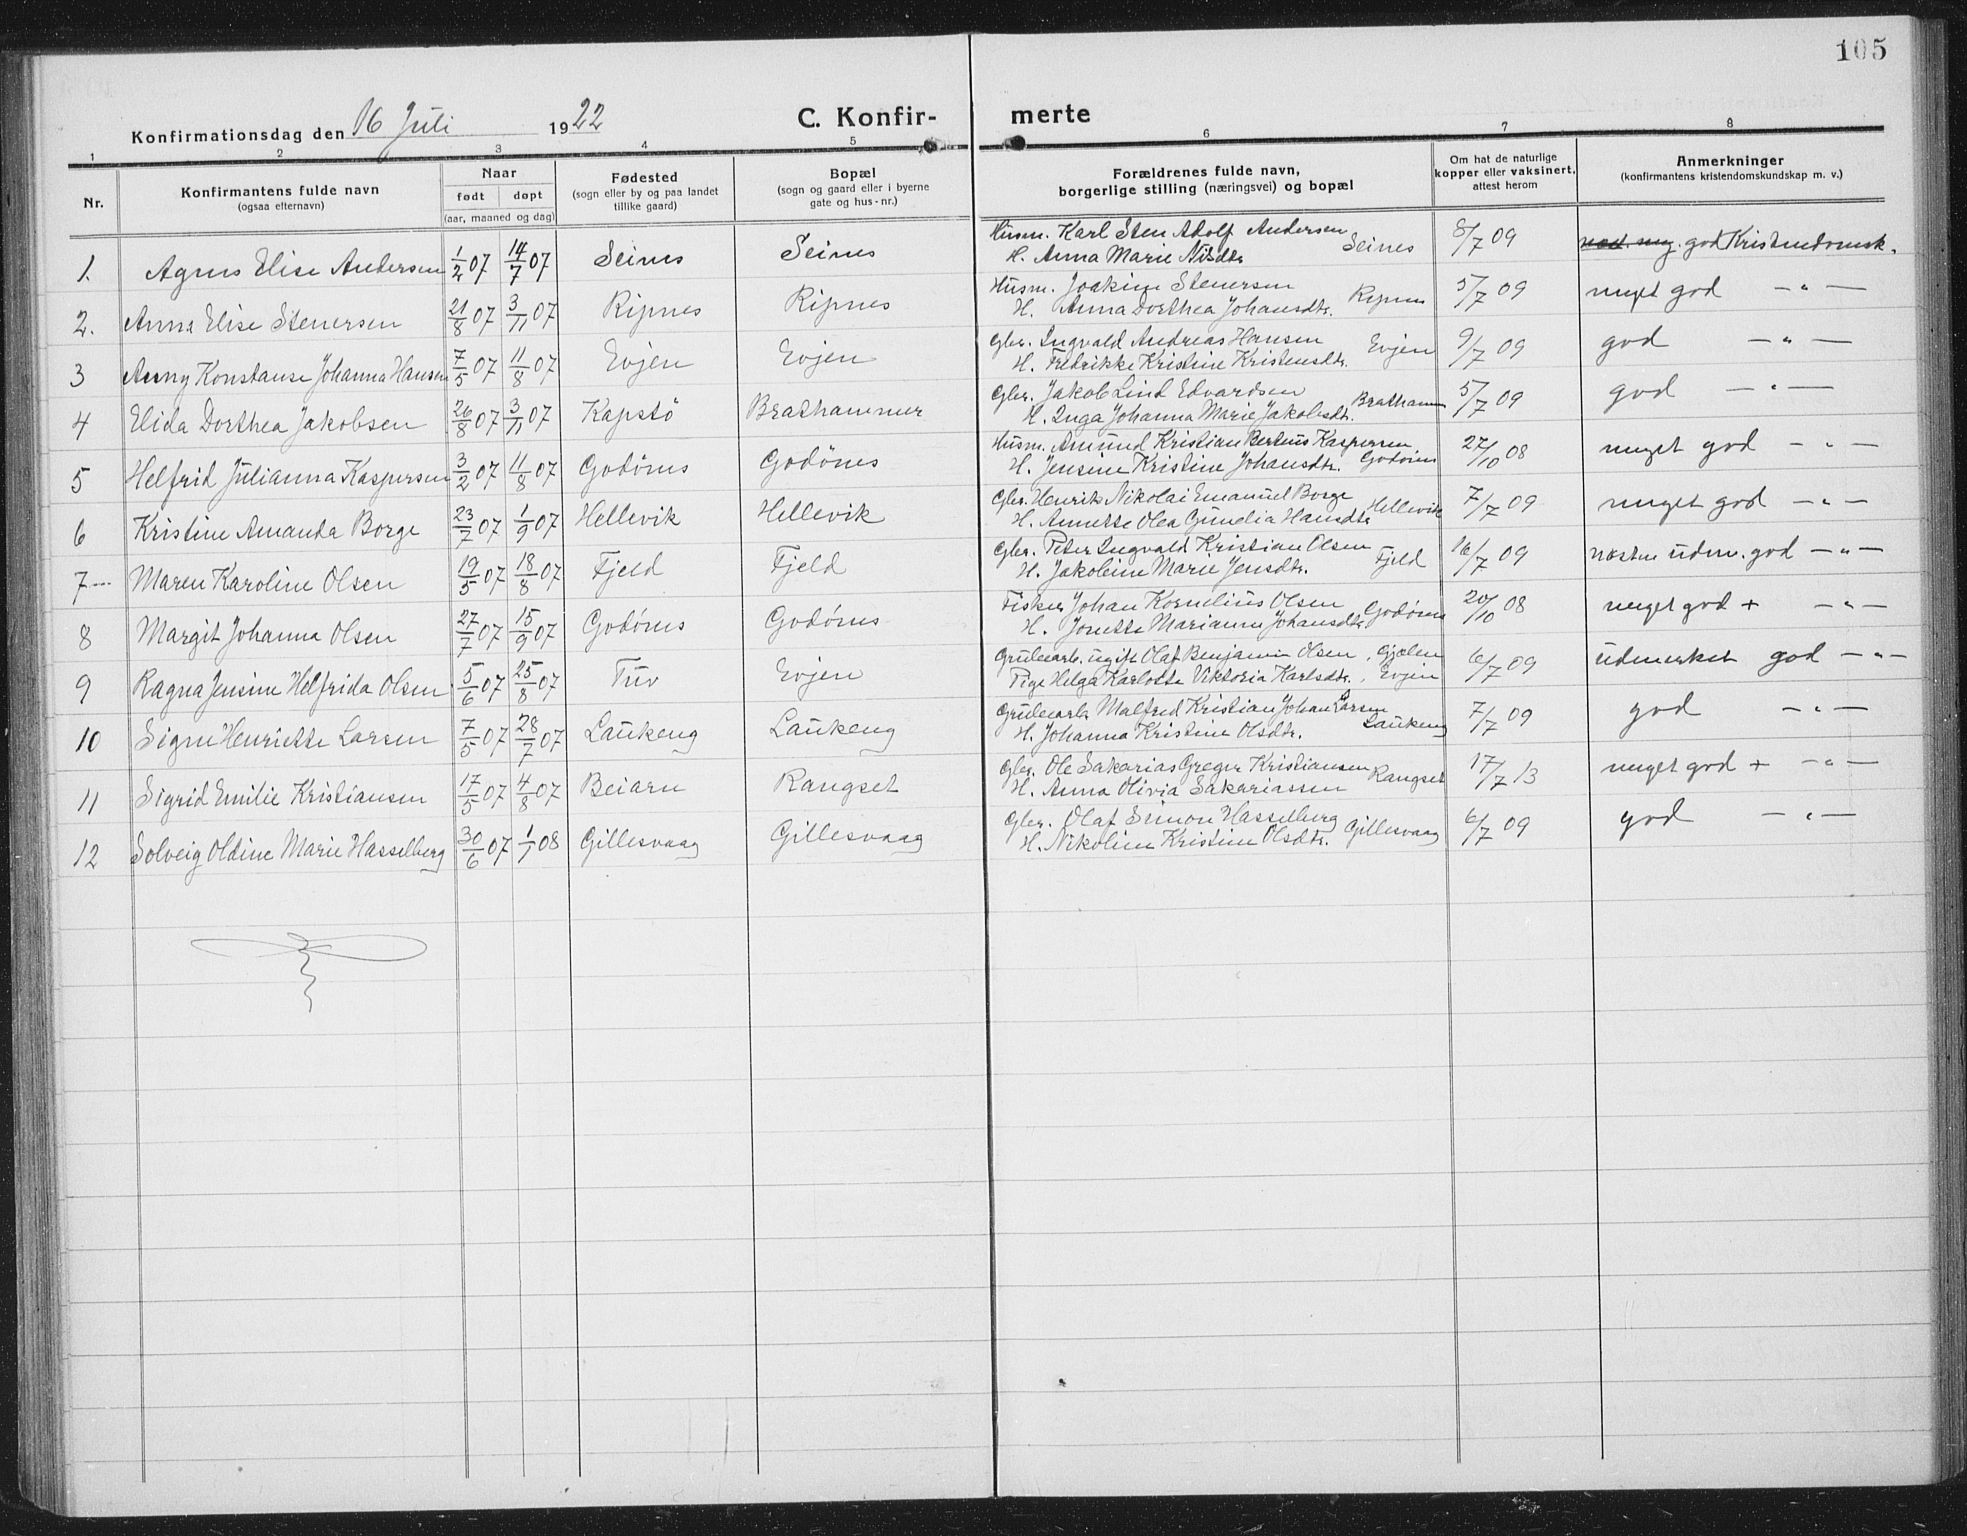 105
Konfirmationsdag den 16 Juli 1922
C. Konfirmerte
1 2 3 4 5 6 7 8
Nr.
Konfirmantens fulde navn
(ogsaa efternavn)
Naar
født døpt
(aar, maaned og dag)
Fødested
(sogn eller by og paa landet
tillike gaard)
Bopæl
(sogn og gaard eller i byerne
gate og hus-nr.)
Forældrenes fulde navn,
borgerlige stilling (næringsvei) og bopæl
Om hat de naturlige
kopper eller vaksinert,
attest herom
Anmerkninger
(konfirmantens kristendomskundskap m. v.)
1. Agnes Elise Andersen 1/2 07 14/7 07 Seines Seines Husm. Karl Sten Adolf Andersen
H. Anna Marie Nilsdtr. Seines 8/7 09 god Kristendomsk.
2. Anna Elise Stenersen 21/8 07 3/11 07 Ripnes Ripnes Husm. Joakim Stenersen
H. Anna Dorthea Johansdtr. Ripnes 5/7 09 meget god — " —
3 Anny Konstanse Johanna Hansen 7/5 07 11/8 07 Evjen Evjen Gbr. Ingvald Andreas Hansen
H. Fredrikke Kristine Kristensdtr. Evjen 9/7 09 god — " —
4 Elida Dorthea Jakobsen 26/8 07 3/11 07 Kapstø Brathammer Gbr. Jakob Lind Edvardsen
H. Inga Johanna Marie Jakobsdtr. Brathamm 5/7 09 god — " —
5 Helfrid Julianna Kaspersen 3/2 07 11/8 07 Godønes Godønes Husm. Amund Kristian Berteus Kaspersen
H. Jensine Kristine Johansdtr. Godønes 27/10 08 meget god — " —
6 Kristine Amanda Borge 23/7 07 1/9 07 Hellevik Hellevik Gbr. Henrik Nikolai Emanuel Borge
H. Annette Olea Gundelia Hansdtr. Hellevik 7/7 09 meget god — " —
7 Maren Karoline Olsen 19/5 07 18/8 07 Fjeld Fjeld Gbr. Peter Ingvald Kristian Olsen
H. Jakobine Marie Jensdtr. Fjeld 16/7 09 næsten udm. god — " —
8 Margit Johanna Olsen 27/7 07 15/9 07 Godønes Godønes Fisker Johan Kornelius Olsen
H. Jonette Marianne Johansdtr. Godønes 20/10 08 meget god + — " —
9 Ragna Jensine Helfrida Olsen 5/6 07 25/8 07 Tuv Evjen Grubearb. ugift Olaf Benjamin Olsen, Gjælen
Pige Helga Karlotte Viktoria Karlsdtr., Evjen 6/7 09 udmerket god — " —
10 Signe Henriette Larsen 7/5 07 28/7 07 Laukeng Laukeng Grubearb. Malfred Kristian Johan Larsen
H. Johanna Kristine Olsdtr. Laukeng 7/7 09 god — " —
11 Sigrid Emilie Kristiansen 17/5 07 4/8 07 Beiarn Rangset Gbr. Ole Sakarias Greger Kristiansen
H. Anna Olivia Sakariassen Rangset 17/7 13 meget god + — " —
12 Solveig Oldine Marie Hasselberg 30/6 07 1/1 08 Gillesvaag Gillesvaag Gbr. Olaf Simon Hasselberg
H. Nikoline Kristine Olsdtr. Gillesvaag 6/7 09 god — " —